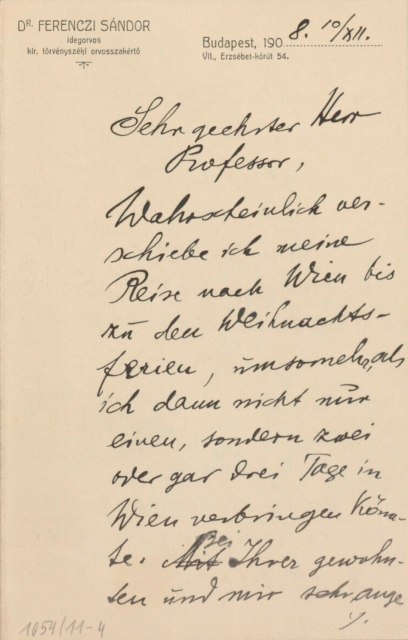 DR. FERENCZI SÁNDOR
idegorvos
kir. törvényszéki orvosszakértő
Budapest, 1908. 10/XII.
VII., Erzsébet-körút 54.
Sehr geehrter Herr
Professor,
Wahrscheinlich ver-
schiebe ich meine
Reise nach Wien bis
zu den Weihnachts-
ferien, umsomehr, als
ich dann nicht nur
einen, sondern zwei
oder gar drei Tage in
Wien verbringen könn-
te. Bei Ihrer gewohn-
ten und mir sehr ange
./.
1054/11-4